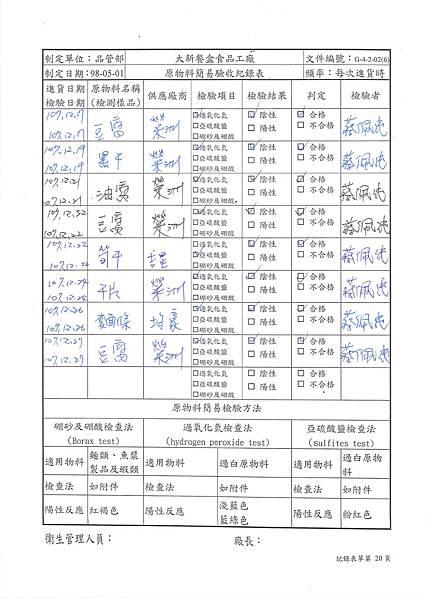 制定單位：品管部 大新餐盒食品工廠 文件編號：G-4-2-02(6)
制定日期：98-05-01 原物料簡易驗收紀錄表 頻率：每次進貨時
進貨日期 原物料名稱 供應廠商 檢驗項目 檢驗結果 判定 檢驗者
檢驗日期 (檢測樣品)
107.12.17 ☑過氧化氫 ☑陰性 ☑合格
107.12.17 豆腐 榮洲 □亞硫酸鹽 □陽性 □不合格 蔡佩
□硼砂及硼酸
107.12.19 ☑過氧化氫 ☑陰性 ☑合格
107.12.19 黑干 榮洲 □亞硫酸鹽 □陽性 □不合格 蔡佩
□硼砂及硼酸
107.12.21 ☑過氧化氫 ☑陰性 ☑合格
107.12.21 油腐 榮洲 □亞硫酸鹽 □陽性 □不合格 蔡佩
□硼砂及硼酸
107.12.22 ☑過氧化氫 ☑陰性 ☑合格
107.12.22 豆腐 榮洲 □亞硫酸鹽 □陽性 □不合格 蔡佩
□硼砂及硼酸
107.12.22 ☑過氧化氫 ☑陰性 ☑合格
107.12.22 筍干 □亞硫酸鹽 □陽性 □不合格 蔡佩
□硼砂及硼酸
107.12.24 ☑過氧化氫 ☑陰性 ☑合格
107.12.24 干片 榮洲 □亞硫酸鹽 □陽性 □不合格 蔡佩
□硼砂及硼酸
107.12.26 ☑過氧化氫 ☑陰性 ☑合格
107.12.26 麵條 均豪 □亞硫酸鹽 □陽性 □不合格 蔡佩
□硼砂及硼酸
107.12.27 ☑過氧化氫 ☑陰性 ☑合格
107.12.27 豆腐 榮洲 □亞硫酸鹽 □陽性 □不合格 蔡佩
□硼砂及硼酸
□過氧化氫 □陰性 □合格
□亞硫酸鹽 □陽性 □不合格
□硼砂及硼酸
原物料簡易檢驗方法
硼砂及硼酸檢查法 過氧化氫檢查法 亞硫酸鹽檢查法
(Borax test) (hydrogen peroxide test) (Sulfites test)
適用物料 麵類、魚漿製品及蝦類 適用物料 過白原物料 適用物料 過白原物料
檢查法 如附件 檢查法 如附件 檢查法 如附件
陽性反應 紅褐色 陽性反應 淺藍色 藍綠色 陽性反應 粉紅色
衛生管理人員： 廠長：
記錄表單第 20 頁